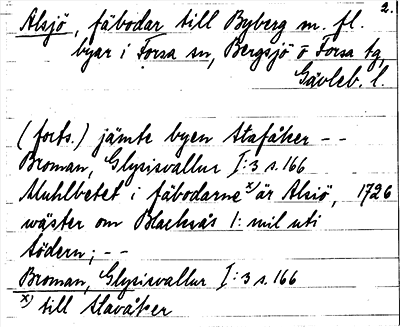 2.
Alsjö, fäbodar till Byberg m. fl.
byar i Forsa sn, Bergsjö o Forsa tg,
Gävleb. l.
(forts.) jämte byen Stafåker --
Broman, Glysisvallur I:3 s. 166
Muhlbetet i fäbodarne x) är Alsiö, 1726
wäster om Blacksås 1: mil uti
södern; --
Broman, Glysisvallur I:3 s. 166
x) till Stavåker